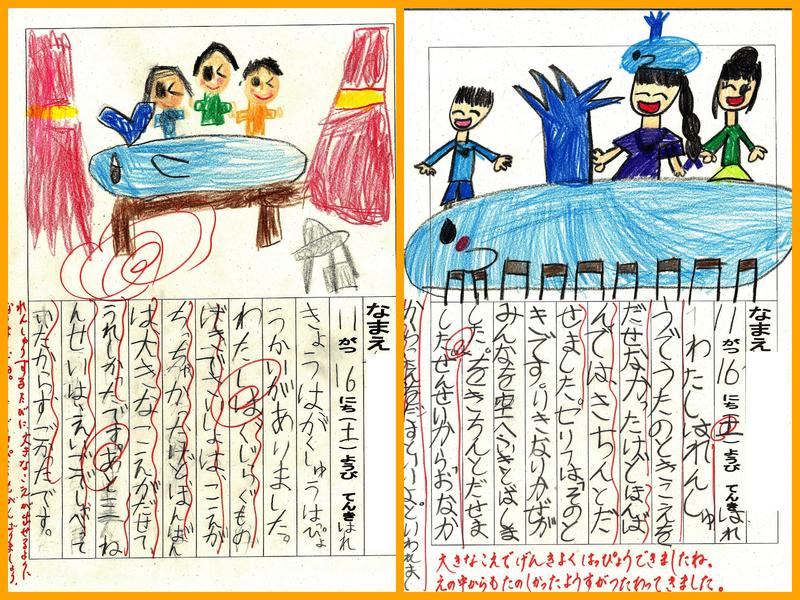 なまえ
11がつ16にち(土)ようび てんきはれ
きょうはがくしゅうはぴょ
うかいがありました。
わたしは、くじらぐもの
げきです。さいしょは、こえが
ちっちゃかったけどほんばん
は大きなこえがだせて
うれしかたです。あと三ね
んせいは、えいごでしゃべて
いたからすごかたです。
れんしゅうするたびに、大きなこえが出せるように
なまえ
11がつ16にち(土)ようび てんきはれ
わたしはれんしゅ
うでうたのときこえを
だせなかったけどほんば
んではきちんとだ
せました。セリフは、そのと
きです。いきなりかぜが
みんなを空へふきとばしま
した。をきちんとだせま
したせんせいからおなか
といわれまし
大きなこえでげんきよくはっぴょうできましたね。
えの中からもたのしかったようすがつたわってきました。